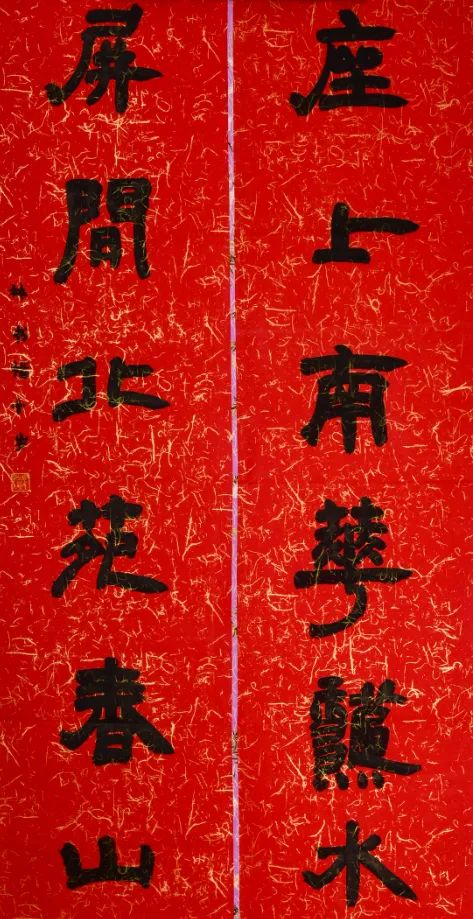 座上南華龝水
屏間北苑春山